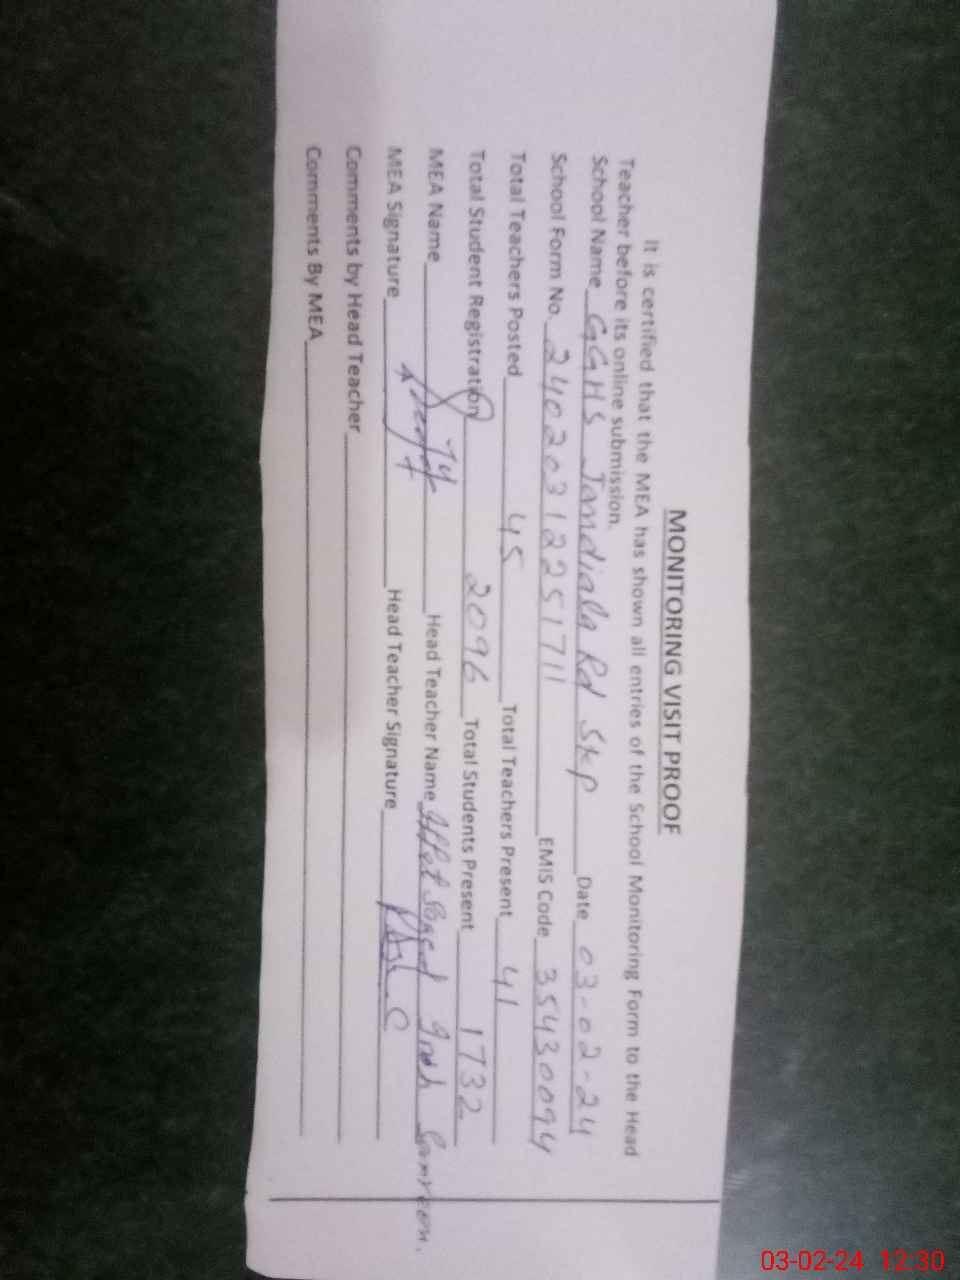 MONITORING VISIT PROOF
It is certified that the MEA has shown all entries of the School Monitoring Form to the Head
Teacher before its online submission.
School Name GGHS Jandiala Rd Skp Date 03-02-24
School Form No. 24020312251711 EMIS Code 35430094
Total Teachers Posted 45 Total Teachers Present 41
Total Student Registration 2096 Total Students Present 1732
MEA Name Head Teacher Name Iffet
MEA Signature Head Teacher Signature
Comments by Head Teacher
Comments By MEA
03-02-24 12:30